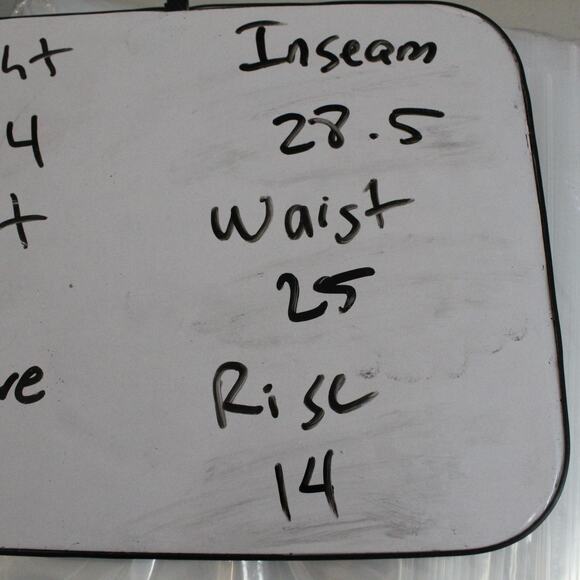 Inseam
4
28.5
Waist
25
Rise
14